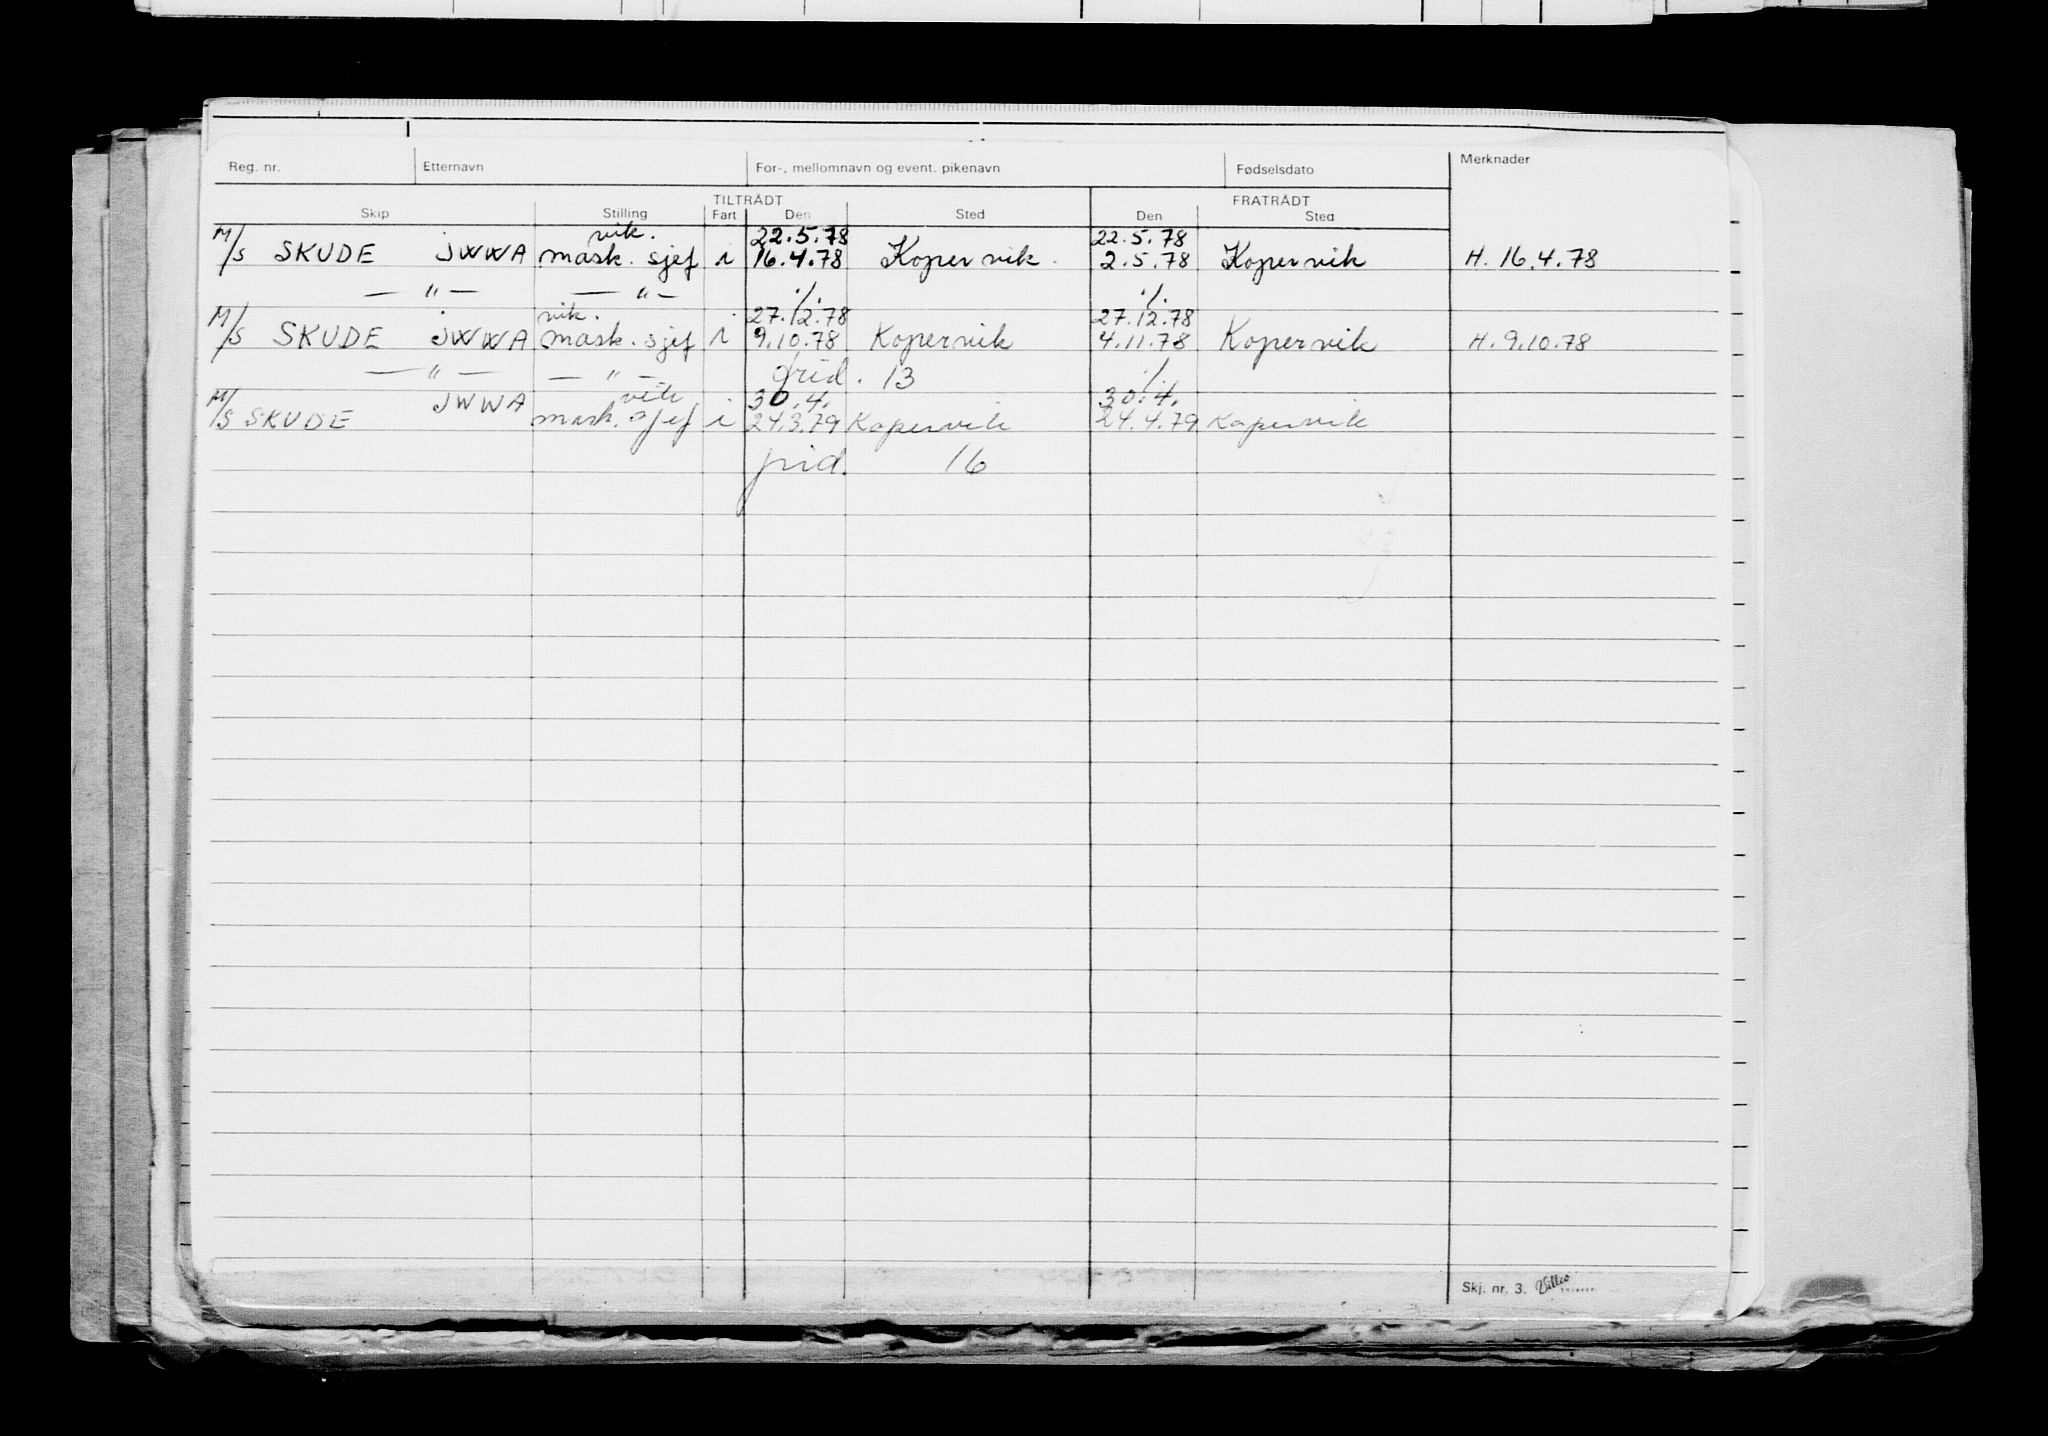 Reg. nr. Etternavn For-, mellomnavn og event. pikenavn Fødselsdato Merknader
TILTRÅDT FRATRÅDT
Skip Stilling Fart Den Sted Den Sted
vik. 22.5.78 22.5.78
M/S SKUDE JWWA mask. sjef i 16.4.78 Kopervik. 2.5.78 Kopervik H. 16.4.78
— " — — " — ./. ./.
vik. 27.12.78 27.12.78
M/S SKUDE JWWA mask. sjef i 9.10.78 Kopervik 4.11.78 Kopervik H. 9.10.78
— " — — " — frid. 13 ./.
JWWA vik 30.4. 30.4.
M/S SKUDE mask. sjef i 24.3.79 Kopervik 24.4.79 Kopervik
frid. 16
Skj. nr. 3.